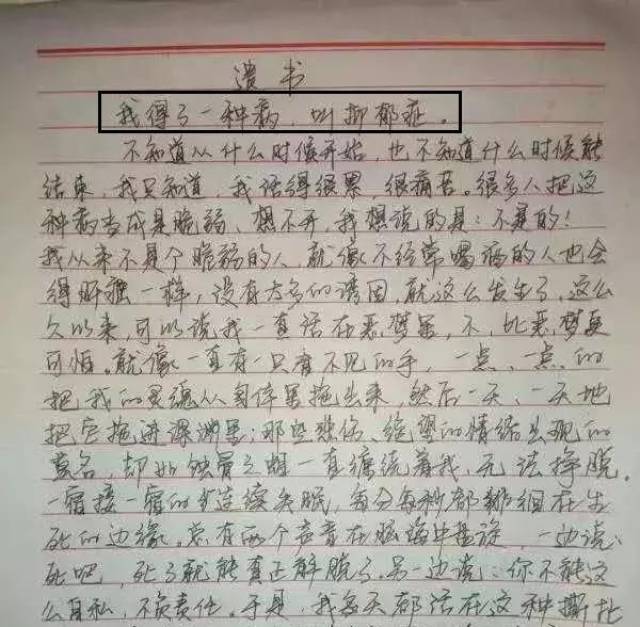 遗书
我得了一种病，叫抑郁症。
不知道从什么时候开始，也不知道什么时候能
结束，我只知道，我活得很累，很痛苦。很多人把这
种病当成是脆弱、想不开，我想说的是：不是的！
我从来不是个脆弱的人，就像不经常喝酒的人也会
得肝癌一样，没有太多的诱因，就这么发生了。这么
久以来，可以说我一直活在恶梦里，不，比恶梦更
可怕。就像一直有一只看不见的手，一点、一点的
把我的灵魂从身体里拖出来，然后一天、一天地
把它拖进深渊里；那些悲伤、绝望的情绪出现的
莫名，却如蚀骨之蛆一直缠绕着我，无法挣脱。
一宿接一宿的连续失眠，每分每秒都徘徊在生
死的边缘。总有两个声音在脑海中盘旋，一边说：
死吧，死了就能真正解脱了。另一边说：你不能这
么自私，不负责任。于是，我每天都活在这种撕扯